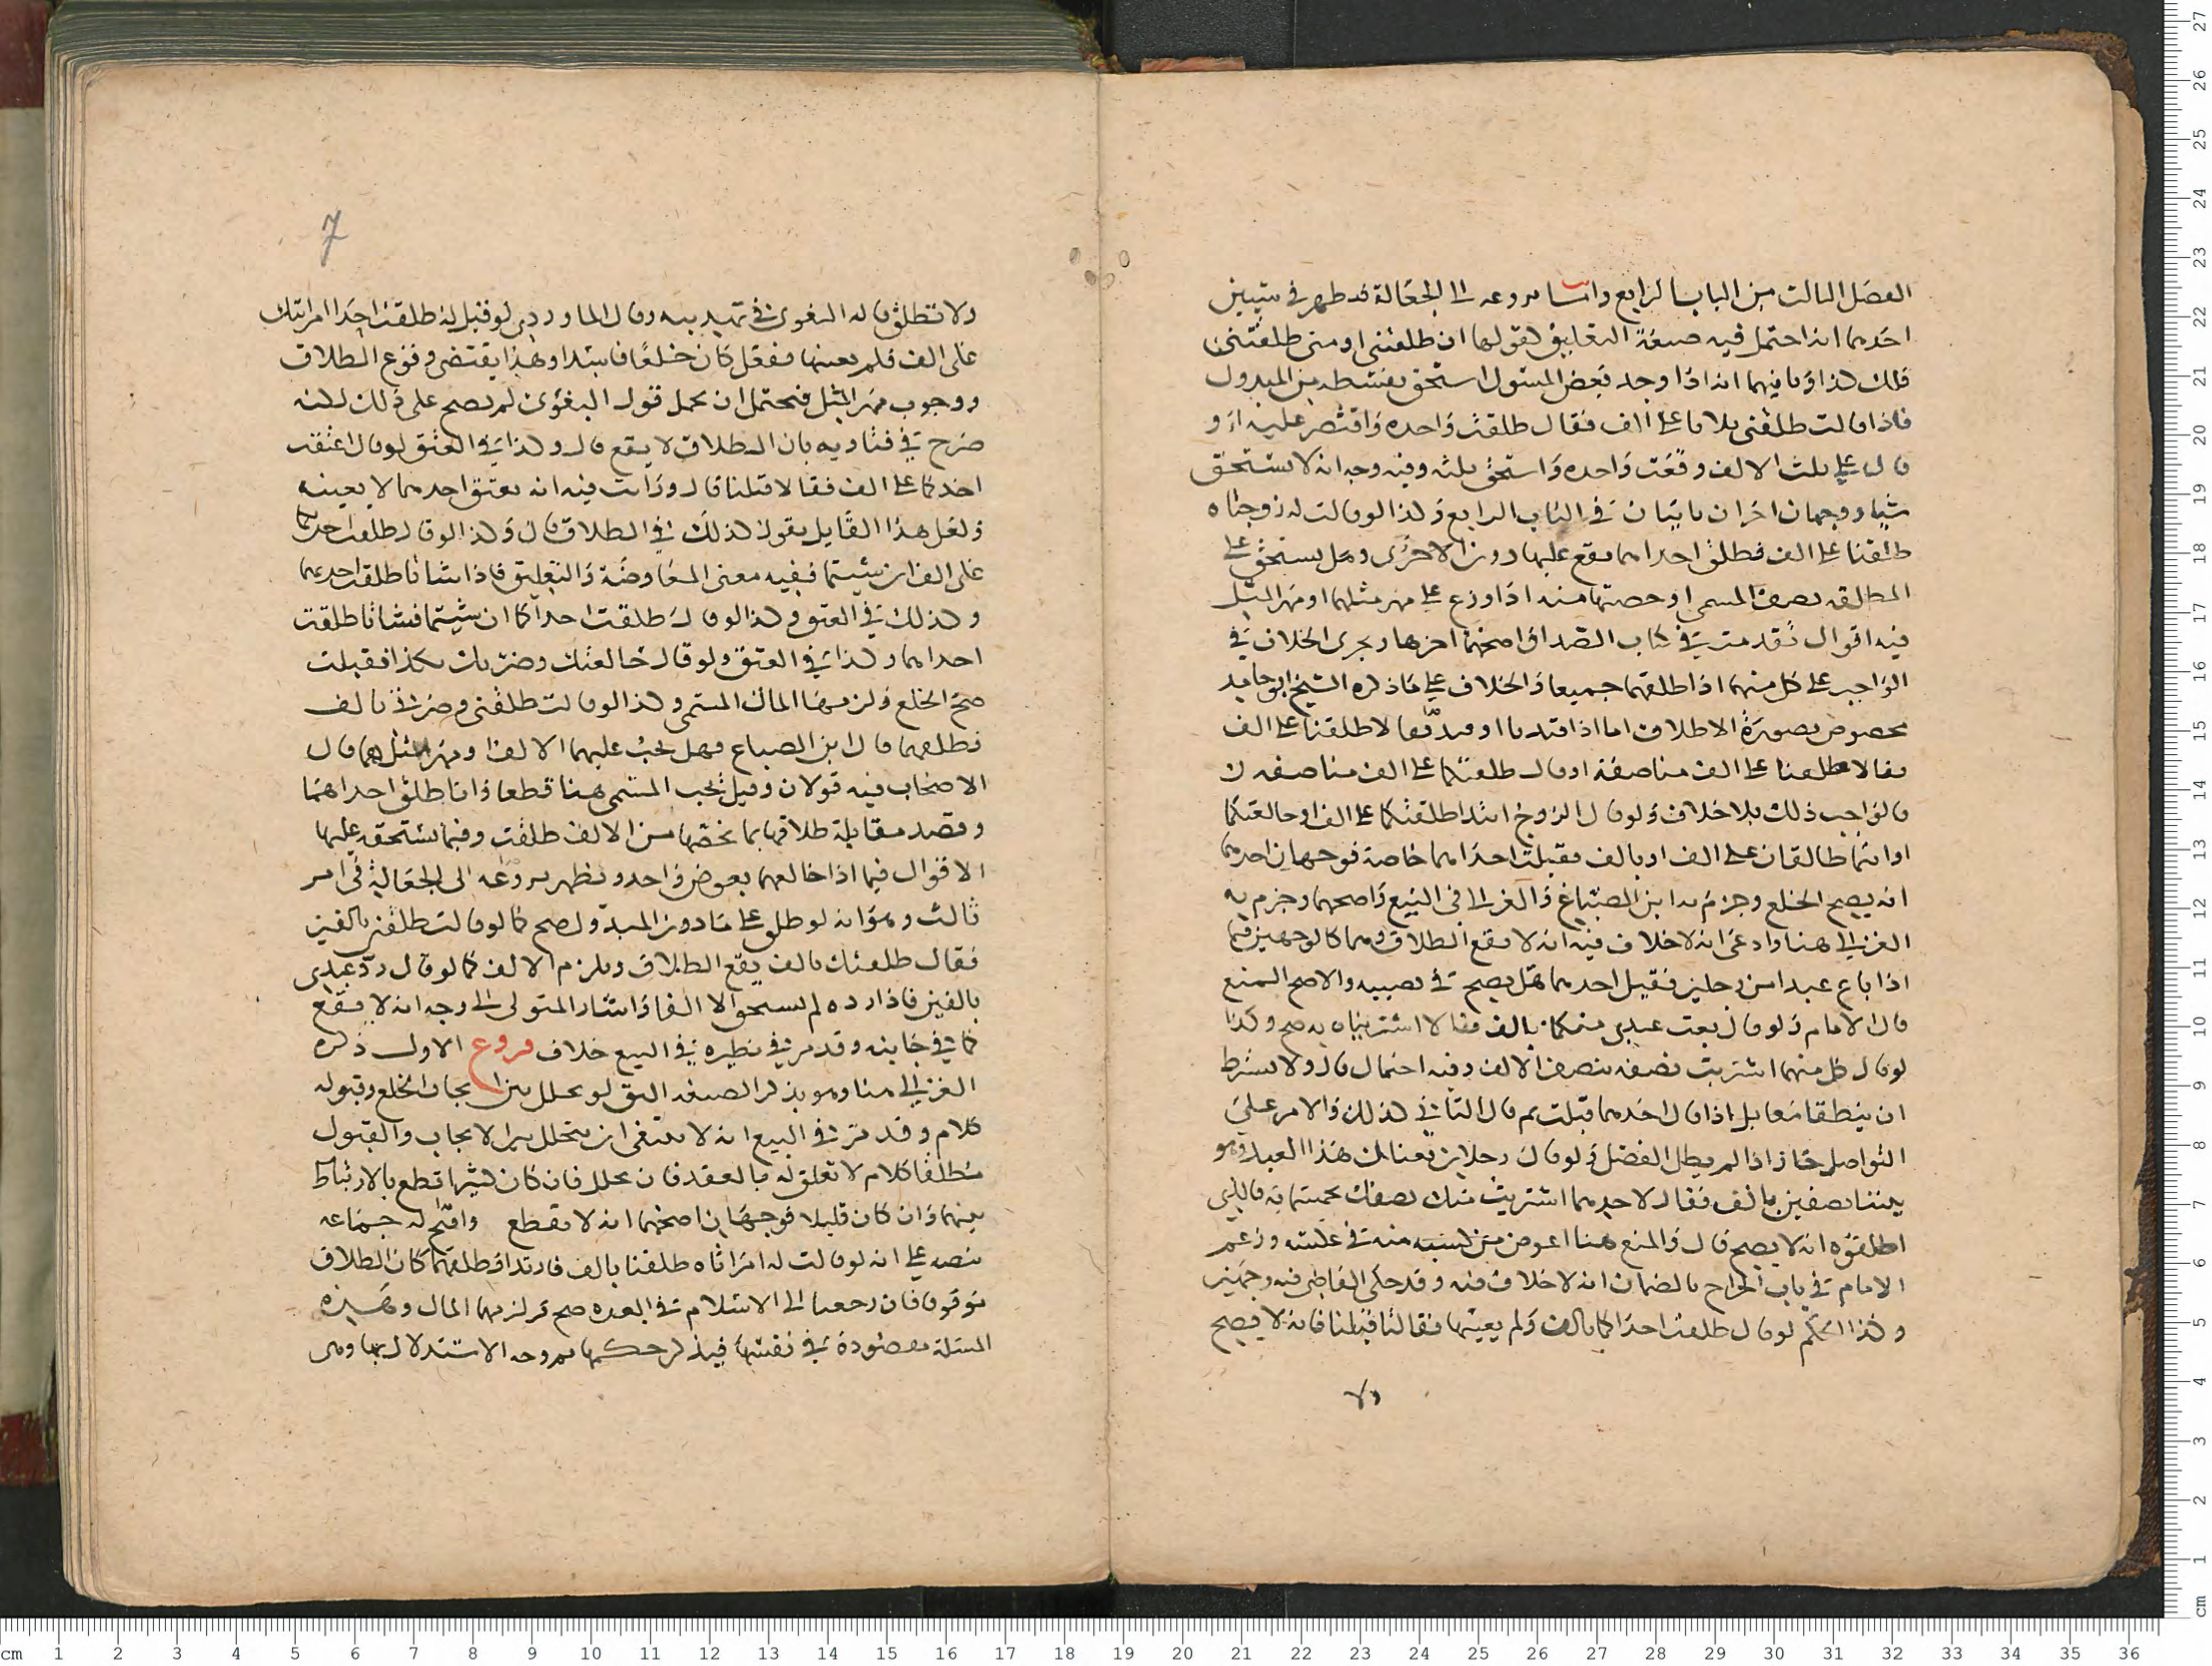 الفصل الثالث من الباب الرابع واما نزوعه الى الجعالة فقد ظهر في شيئين
احدهما انه احتمل فيه صيغة التعليق لقولها ان طلقتني او متى طلقتني
فلك كذا وثانيهما انه اذا وجد بعض المسئول استحق بقسطه من المبذول
فاذا قالت طلقني ثلاثا على الف فقال طلقت واحده واقتصر عليه او
قال على ثلث الالف وقعت واحده واستحق ثلثه وفيه وجه انه لا يستحق
شيا ووجهان اخران ياتيان في الباب الرابع وكذا لو قالت له زوجتاه
طلقنا على الف فطلق احداهما يقع عليها دون الاخرى وهل يستحق على
المطلقه نصف المسمى او حصتها منه اذا وزع على مهر مثلهما او مهر المثل
فيه اقوال تقدمت في كتاب الصداق اصحها اخرها ويجري الخلاف في
الواجب على كل منهما اذا طلقهما جميعا والخلاف على ما ذكره الشيخ ابو حامد
مخصوص بصورة الاطلاق اما اذا
فقالا طلقنا على الف مناصفة او قال طلقتكما على الف مناصفه
فالواجب ذلك بلا خلاف ولو قال الزوج ابتدا طلقتكما على الف او خالعتكما
او انتما طالقان على الف او بالف فقبلت احداهما خاصة فوجهان احدهما
انه يصح الخلع وجزم به ابن الصباغ والغزالي في البيع واصحهما وجزم به
الغزالي هنا وادعى انه لا خلاف فيه انه لا يقع الطلاق وهما كالوجهين فيما
اذا باع عبدا من رجلين فقبل احدهما هل يصح في نصيبه والاصح المنع
قال الامام ولو قال بعت عبدي منكما بالف فقالا اشتريناه به صح وكذا
لو قال كل منهما اشتريت نصفه بنصف الالف وفيه احتمال قال ولا يشترط
ان ينطقا معا بل اذا قال احدهما قبلت ثم قال الثاني كذلك والامر على
التواصل جاز اذا لم يطل الفصل ولو قال رجلان بعناك هذا العبد وهو
بيننا نصفين بالف فقال لاحدهما اشتريت منك نصفك بخمسمائه فالذي
اطلقوه انه لا يصح قال والمنع هنا اغوص من لنسبه منه في عكسه وزعم
الامام في باب الخراج بالضمان انه لا خلاف فيه وقد حكى القاضي فيه وجهين
وكذا الحكم لو قال طلقت احداكما بالف ولم يعينها فقالتا قبلنا فانه لا يصح
ولا
7
ولا تطلق قاله البغوي في تهذيبه وقال الماوردي لو قيل له طلقت احدا امراتيك
على الف فلم يعينها ففعل كان خلعا فاسدا وهذا يقتضي وقوع الطلاق
ووجوب مهر المثل فيحتمل ان يحمل قول البغوي لم يصح على ذلك لكنه
صرح في فتاويه بان الطلاق لا يقع قال وكذا في العتق لو قال اعتقت
احدكما على الف فقالا قبلنا قال ورايت فيه انه يعتق احدهما لا بعينه
ولعل هذا القايل يقول كذلك في الطلاق قال وكذا لو قال طلقت احداكما
على الف ان شيتما ففيه معنى المعاوضة والتعليق فاذا شاتا طلقت احدهما
وكذلك في العتق وكذا لو قال طلقت احداكما ان شيتما فشاتا طلقت
احداهما وكذا في العتق ولو قال خالعتك وضرتك بكذا فقبلت
صح الخلع ولزمها المال المسمى وكذا لو قالت طلقني وضرتي بالف
فطلقهما قال ابن الصباغ فهل يجب عليهما الالف او مهر المثل قال
الاصحاب فيه قولان وقيل يجب المسمى هنا قطعا واذا طلق احداهما
وقصد مقابلة طلاقها بما يخصها من الالف طلقت وفيما يستحقه عليها
الاقوال فيما اذا خالعهما بعوض واحد ونظهر نزوعه الى الجعالة في امر
ثالث وهو انه لو طلق على ما دون المبذول صح كما لو قالت طلقني بالفين
فقال طلقتك بالف يقع الطلاق ويلزم الالف كما لو قال رد عبدي
بالفين فاذا رده لم يستحق الا الفا واشار المتولي الى وجه انه لا يقع
كما في جانبه وقد مر في نظيره في البيع خلاف فروع الاول ذكره
الغزالي هنا وهو يذكر الصيغه اليق لو تخلل بين ايجاب الخلع وقبوله
كلام وقد مر في البيع انه لا ينبغي ان يتخلل بين الايجاب والقبول
مطلقا كلام لا تعلق له بالعقد فان تخلل فان كان كثيرا قطع بالارتباط
بينهما وان كان قليلا فوجهان اصحهما انه لا يقطع واحتج له جماعه
بنصه على انه لو قالت له امراتاه طلقنا بالف فارتدا فطلقهما كان الطلاق
موقوفا فان رجعتا الى الاسلام في العده صح ولزمهما المال وهذه
المسئلة مقصودة في نفسها فيذكر حكمها ثم وجه الاستدلال بها وهي